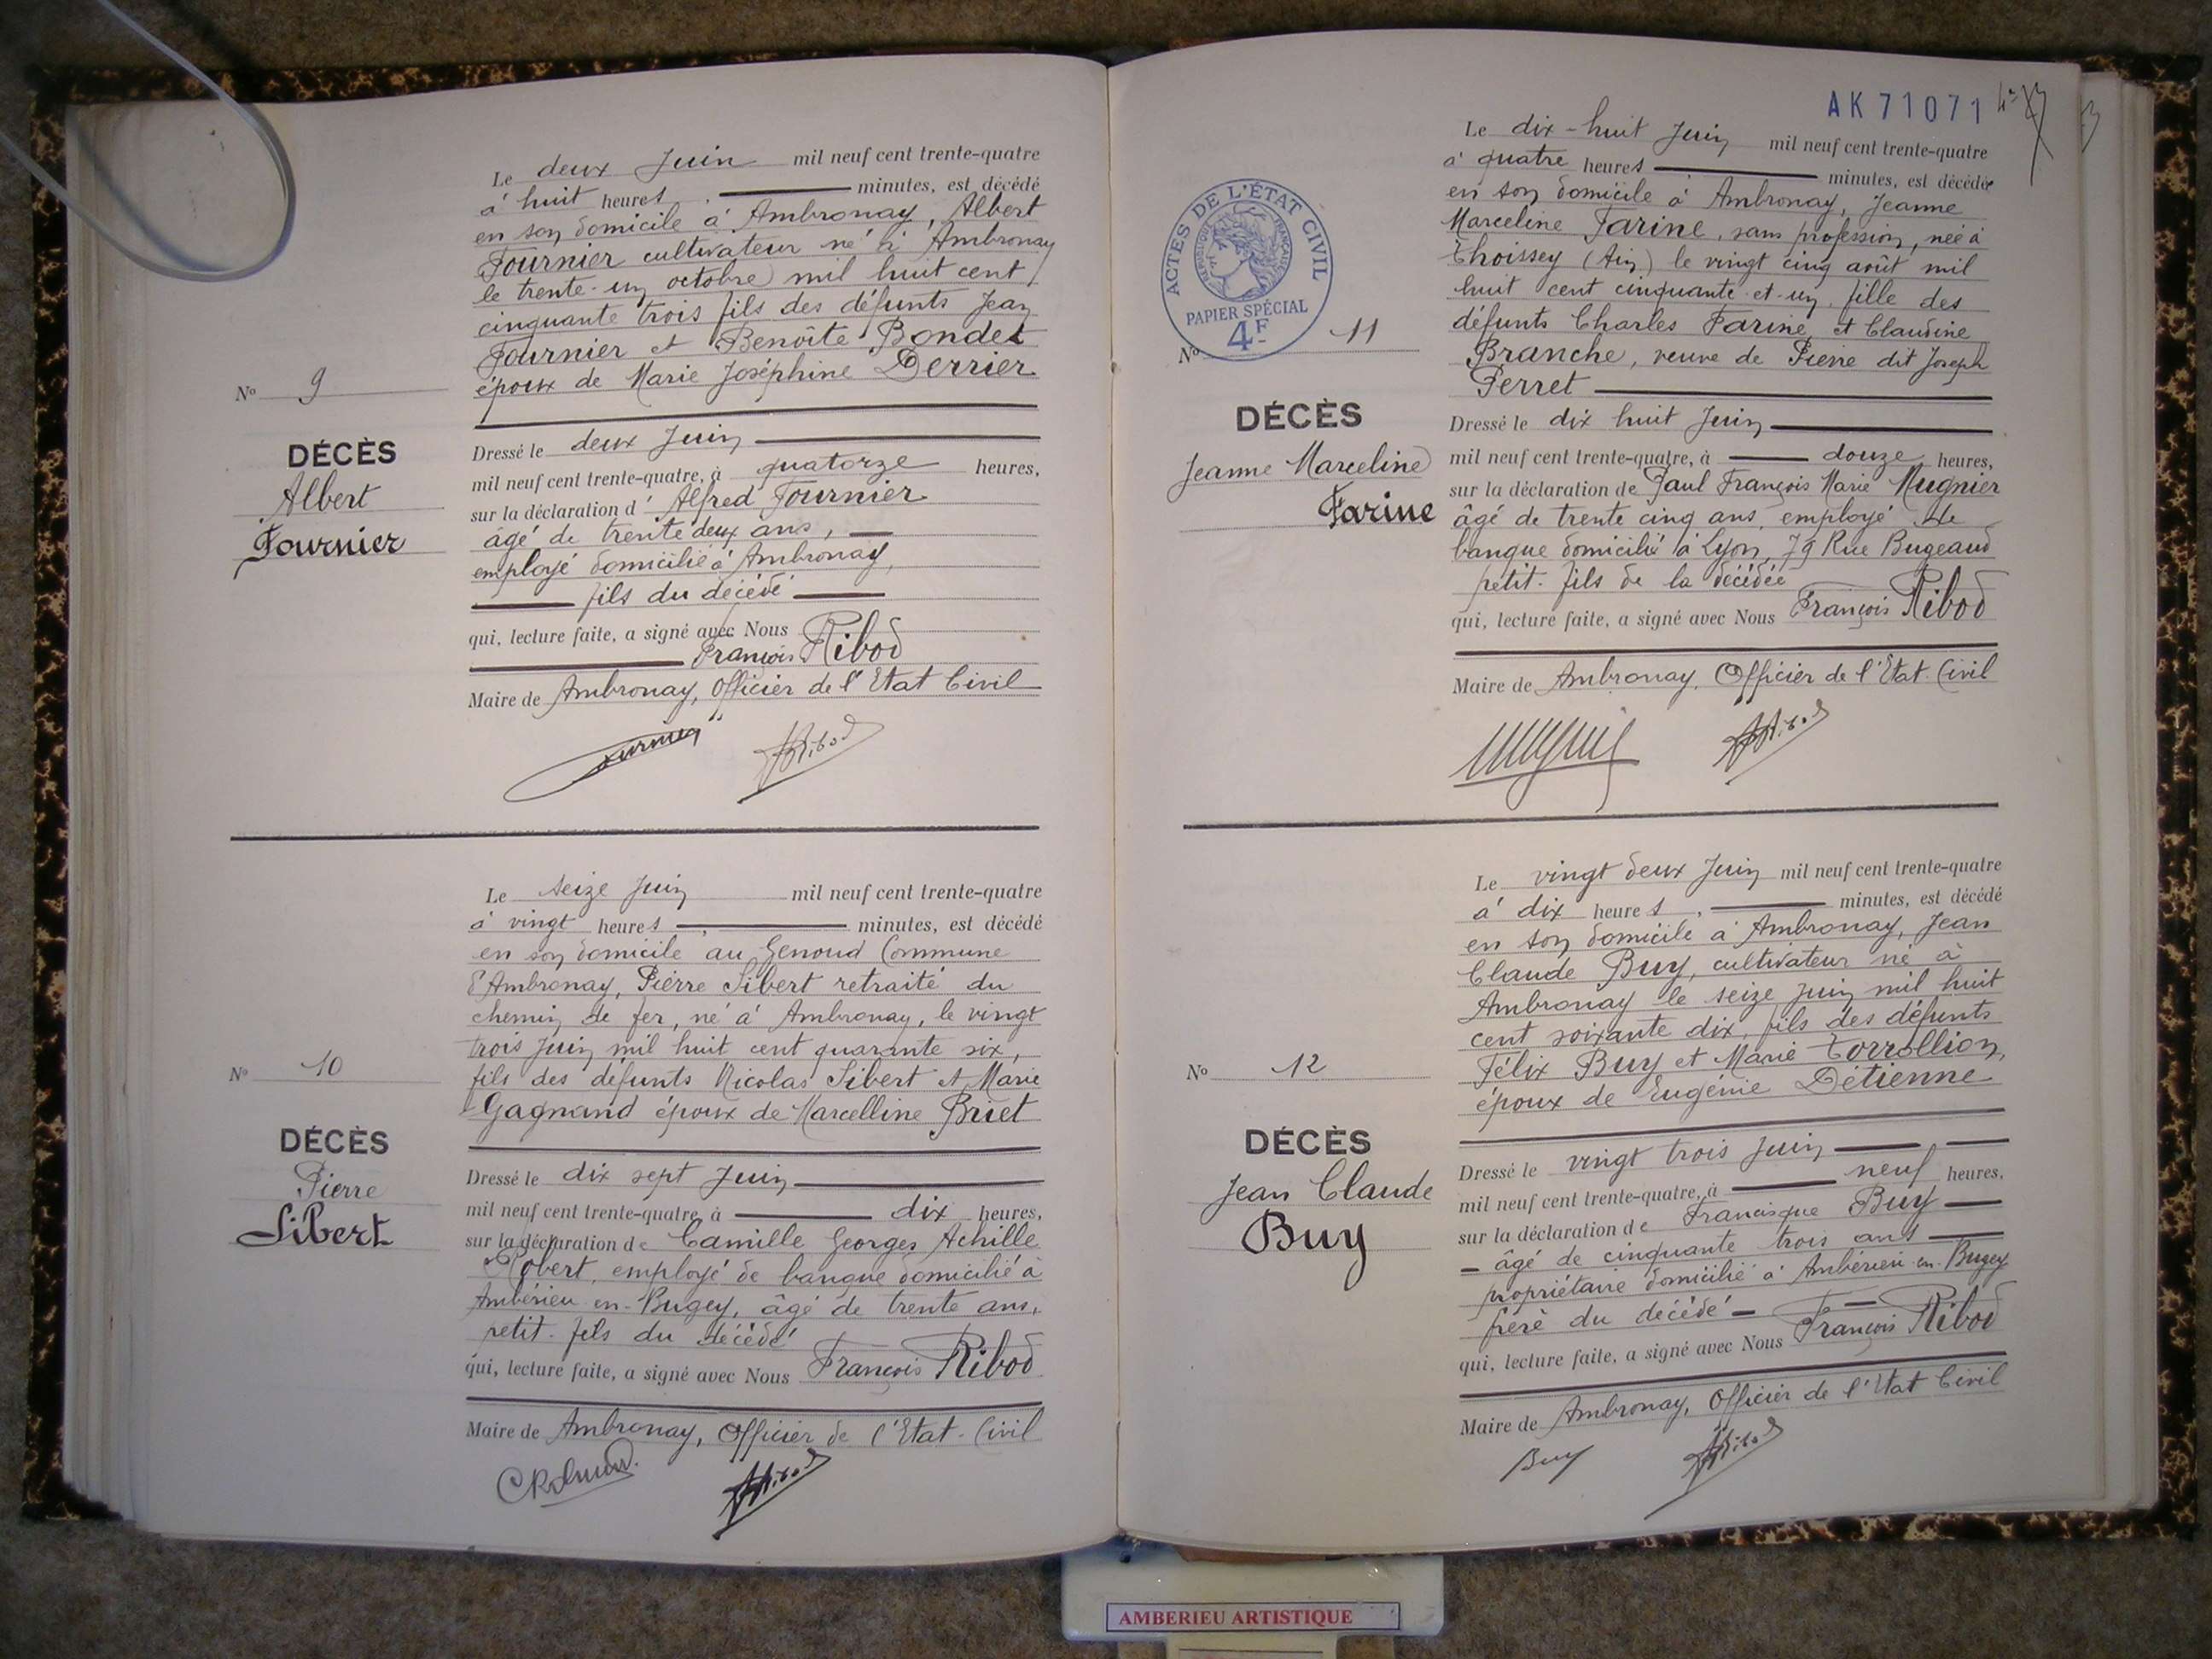 Le deux Juin mil neuf cent trente-quatre
à huit heures minutes, est décédé
en son domicile à Ambronay, Albert
Fournier cultivateur né à Ambronay
le trente-un octobre mil huit cent
cinquante trois fils des défunts Jean
Fournier et Benoîte Bondet
époux de Marie Joséphine Derrier
No 9
DÉCÈS
Albert
Fournier
Dressé le deux Juin
mil neuf cent trente-quatre, à quatorze heures,
sur la déclaration d' Alfred Fournier
âgé de trente deux ans,
employé domicilié à Ambronay,
fils du décédé
qui, lecture faite, a signé avec Nous
François Ribod
Maire de Ambronay, Officier de l'Etat Civil
Fournier Ribod
Le seize Juin mil neuf cent trente-quatre
à vingt heures minutes, est décédé
en son domicile au Genoud Commune
d'Ambronay, Pierre Sibert retraité du
chemin de fer, né à Ambronay, le vingt
trois Juin mil huit cent quarante six,
fils des défunts Nicolas Sibert et Marie
Gagnand époux de Marcelline Briet
No 10
DÉCÈS
Pierre
Sibert
Dressé le dix sept Juin
mil neuf cent trente-quatre, à dix heures,
sur la déclaration de Camille Georges Achille
Robert, employé de banque domicilié à
Ambérieu-en-Bugey, âgé de trente ans,
petit-fils du décédé
qui, lecture faite, a signé avec Nous François Ribod
Maire de Ambronay, Officier de l'Etat-Civil
Ribod
AK 71071
Le dix-huit Juin mil neuf cent trente-quatre
à quatre heures minutes, est décédée
en son domicile à Ambronay, Jeanne
Marceline Farine, sans profession, née à
Thoissey (Ain) le vingt cinq août mil
huit cent cinquante-et-un, fille des
défunts Charles Farine et Claudine
Branche, veuve de Pierre dit Joseph
Perret
ACTES DE L'ÉTAT CIVIL
RÉPUBLIQUE FRANÇAISE
PAPIER SPÉCIAL
4F
No 11
DÉCÈS
Jeanne Marceline
Farine
Dressé le dix huit Juin
mil neuf cent trente-quatre, à douze heures,
sur la déclaration de Paul François Marie Mugnier
âgé de trente cinq ans, employé de
banque domicilié à Lyon, 79 Rue Bugeaud
petit-fils de la décédée
qui, lecture faite, a signé avec Nous François Ribod
Maire de Ambronay, Officier de l'Etat-Civil
Mugnier Ribod
Le vingt deux Juin mil neuf cent trente-quatre
à dix heures, minutes, est décédé
en son domicile à Ambronay, Jean
Claude Buy, cultivateur né à
Ambronay le seize Juin mil huit
cent soixante dix, fils des défunts
Félix Buy et Marie Torrollion,
époux de Eugénie Détienne
No 12
DÉCÈS
Jean Claude
Buy
Dressé le vingt trois Juin
mil neuf cent trente-quatre, à neuf heures,
sur la déclaration de Francisque Buy
âgé de cinquante trois ans
propriétaire domicilié à Ambérieu-en-Bugey
frère du décédé
qui, lecture faite, a signé avec Nous François Ribod
Maire de Ambronay, Officier de l'Etat Civil
Buy Ribod
AMBERIEU ARTISTIQUE